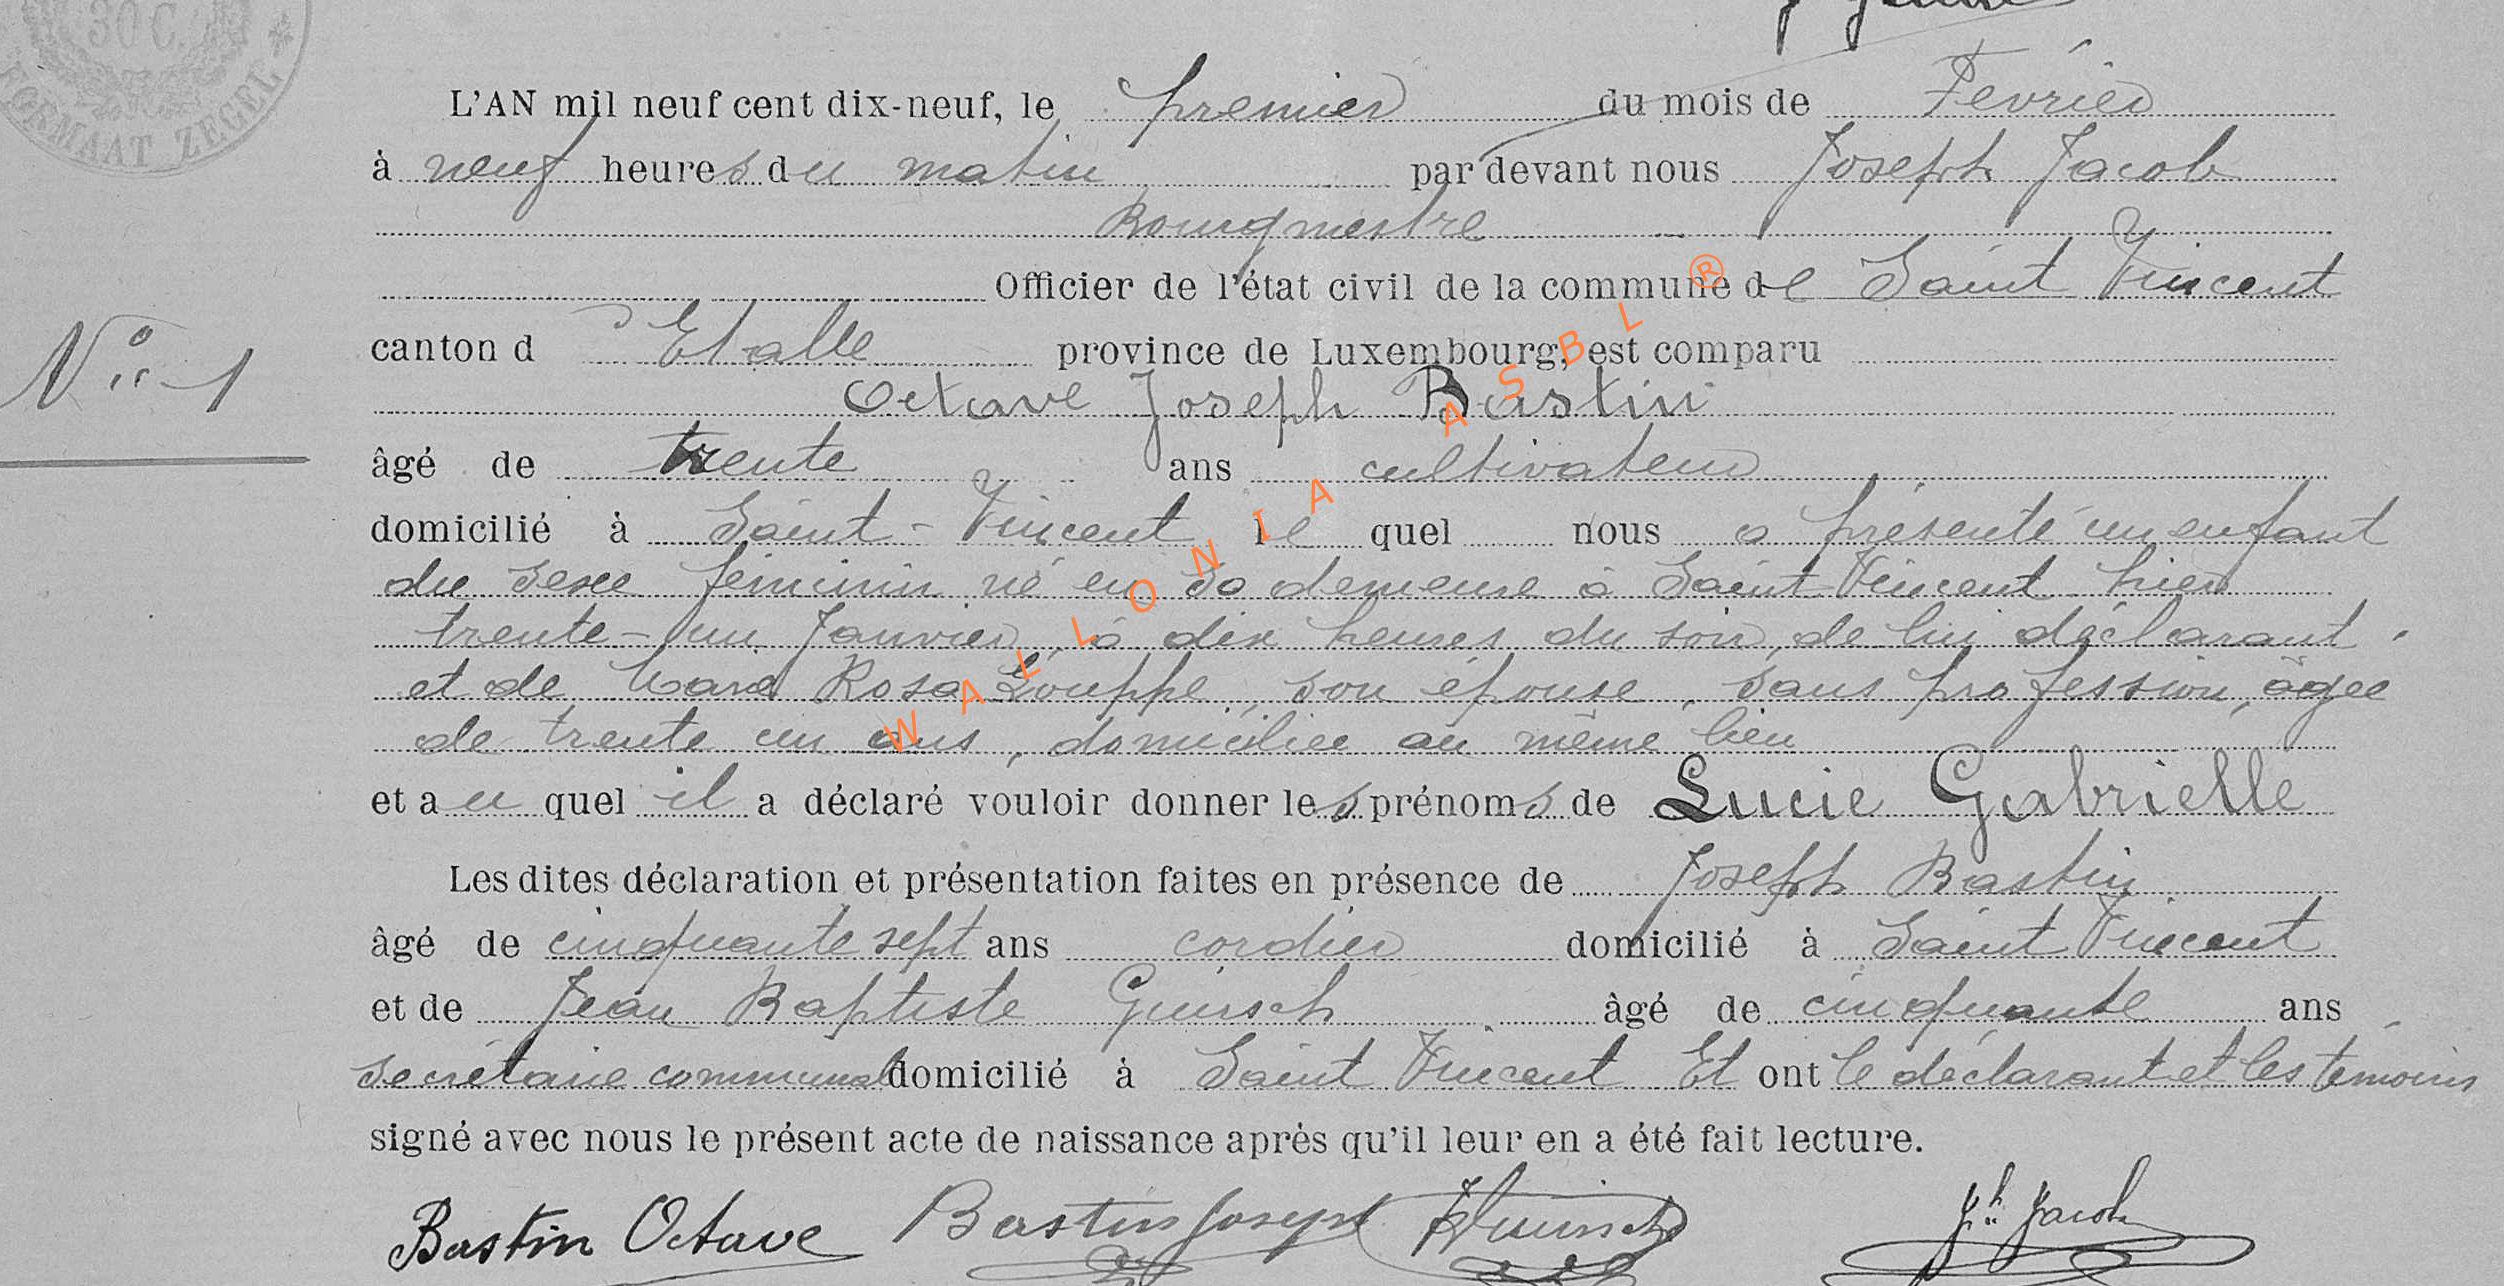 30 C.
FORMAAT ZEGEL
L'AN mil neuf cent dix-neuf, le premier du mois de Février
à neuf heures du matin par devant nous Joseph Jacob
Bourgmestre
Officier de l'état civil de la commune de Saint Vincent
N° 1
canton d'Etalle province de Luxembourg, est comparu
Octave Joseph Bastin
âgé de trente ans cultivateur
domicilié à Saint-Vincent lequel nous a présenté un enfant
du sexe féminin né en sa demeure à Saint-Vincent hier
trente-un Janvier, à dix heures du soir, de lui déclarant
et de Rosa Louppe, son épouse, sans profession, âgée
de trente un ans, domiciliée au même lieu
et au quel il a déclaré vouloir donner les prénoms de Lucie Gabrielle
Les dites déclaration et présentation faites en présence de Joseph Bastin
âgé de cinquante sept ans cordier domicilié à Saint Vincent
et de Jean Baptiste Guirsch âgé de cinquante ans
secrétaire communal domicilié à Saint Vincent Et ont le déclarant et les témoins
signé avec nous le présent acte de naissance après qu'il leur en a été fait lecture.
Bastin Octave Bastin Joseph Guirsch Jh Jacob
WALLONIA ASBL ®